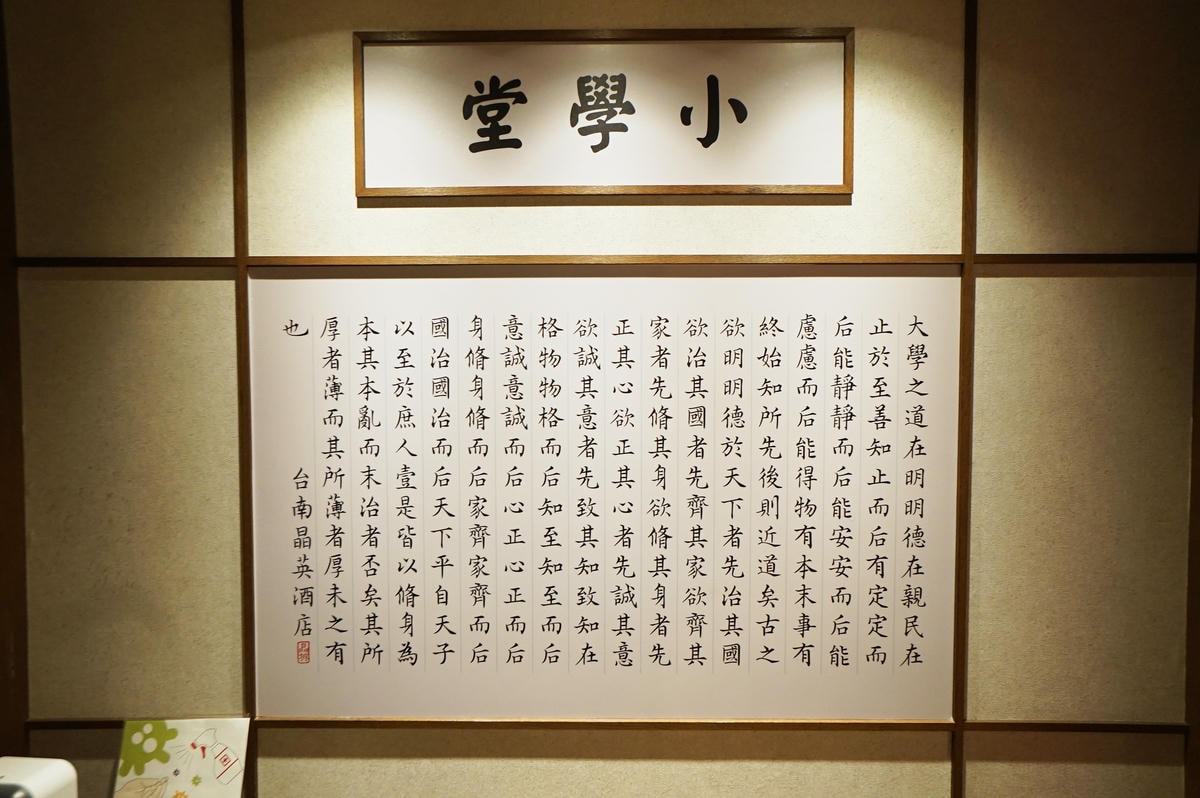 小學堂
大學之道在明明德在親民在
止於至善知止而后有定定而
后能靜靜而后能安安而后能
慮慮而后能得物有本末事有
終始知所先後則近道矣古之
欲明明德於天下者先治其國
欲治其國者先齊其家欲齊其
家者先脩其身欲脩其身者先
正其心欲正其心者先誠其意
欲誠其意者先致其知致知在
格物物格而后知至知至而后
意誠意誠而后心正心正而后
身脩身脩而后家齊家齊而后
國治國治而后天下平自天子
以至於庶人壹是皆以脩身為
本其本亂而末治者否矣其所
厚者薄而其所薄者厚未之有
也
台南晶英酒店